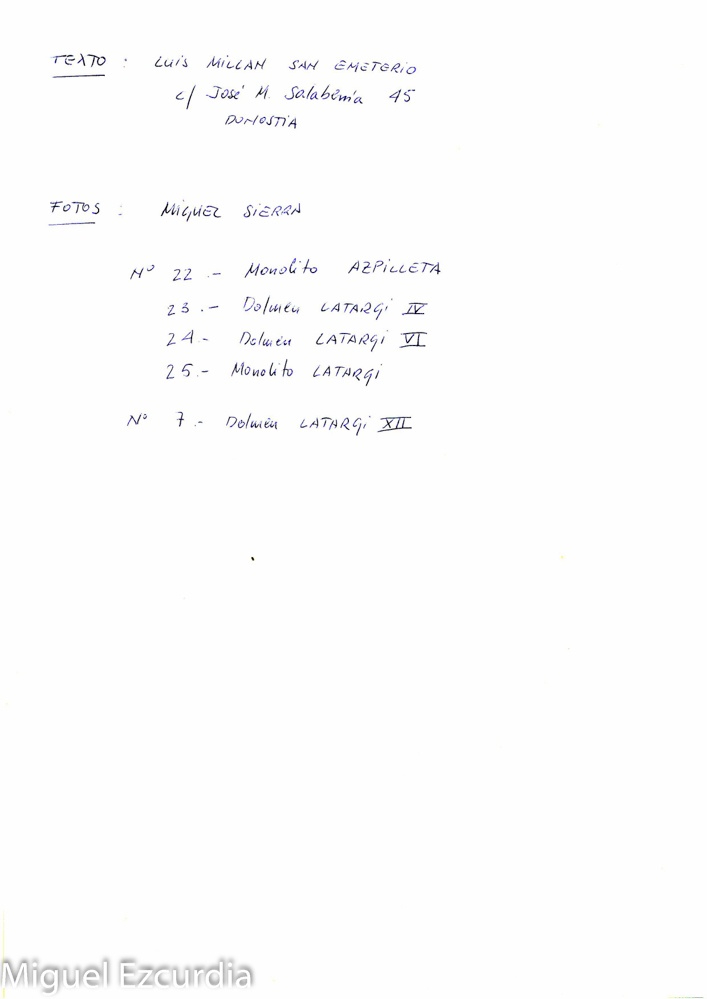 TEXTO : LUIS MILLAN SAN EMETERIO
c/ José M. Salaberria 45
DONOSTIA
FOTOS : MIGUEL SIERRA
Nº 22 .- Monolito AZPILLETA
23 .- Dolmen LATARGI IV
24 .- Dolmen LATARGI VI
25 .- Monolito LATARGI
Nº 7 .- Dolmen LATARGI XII
Miguel Ezcurdia